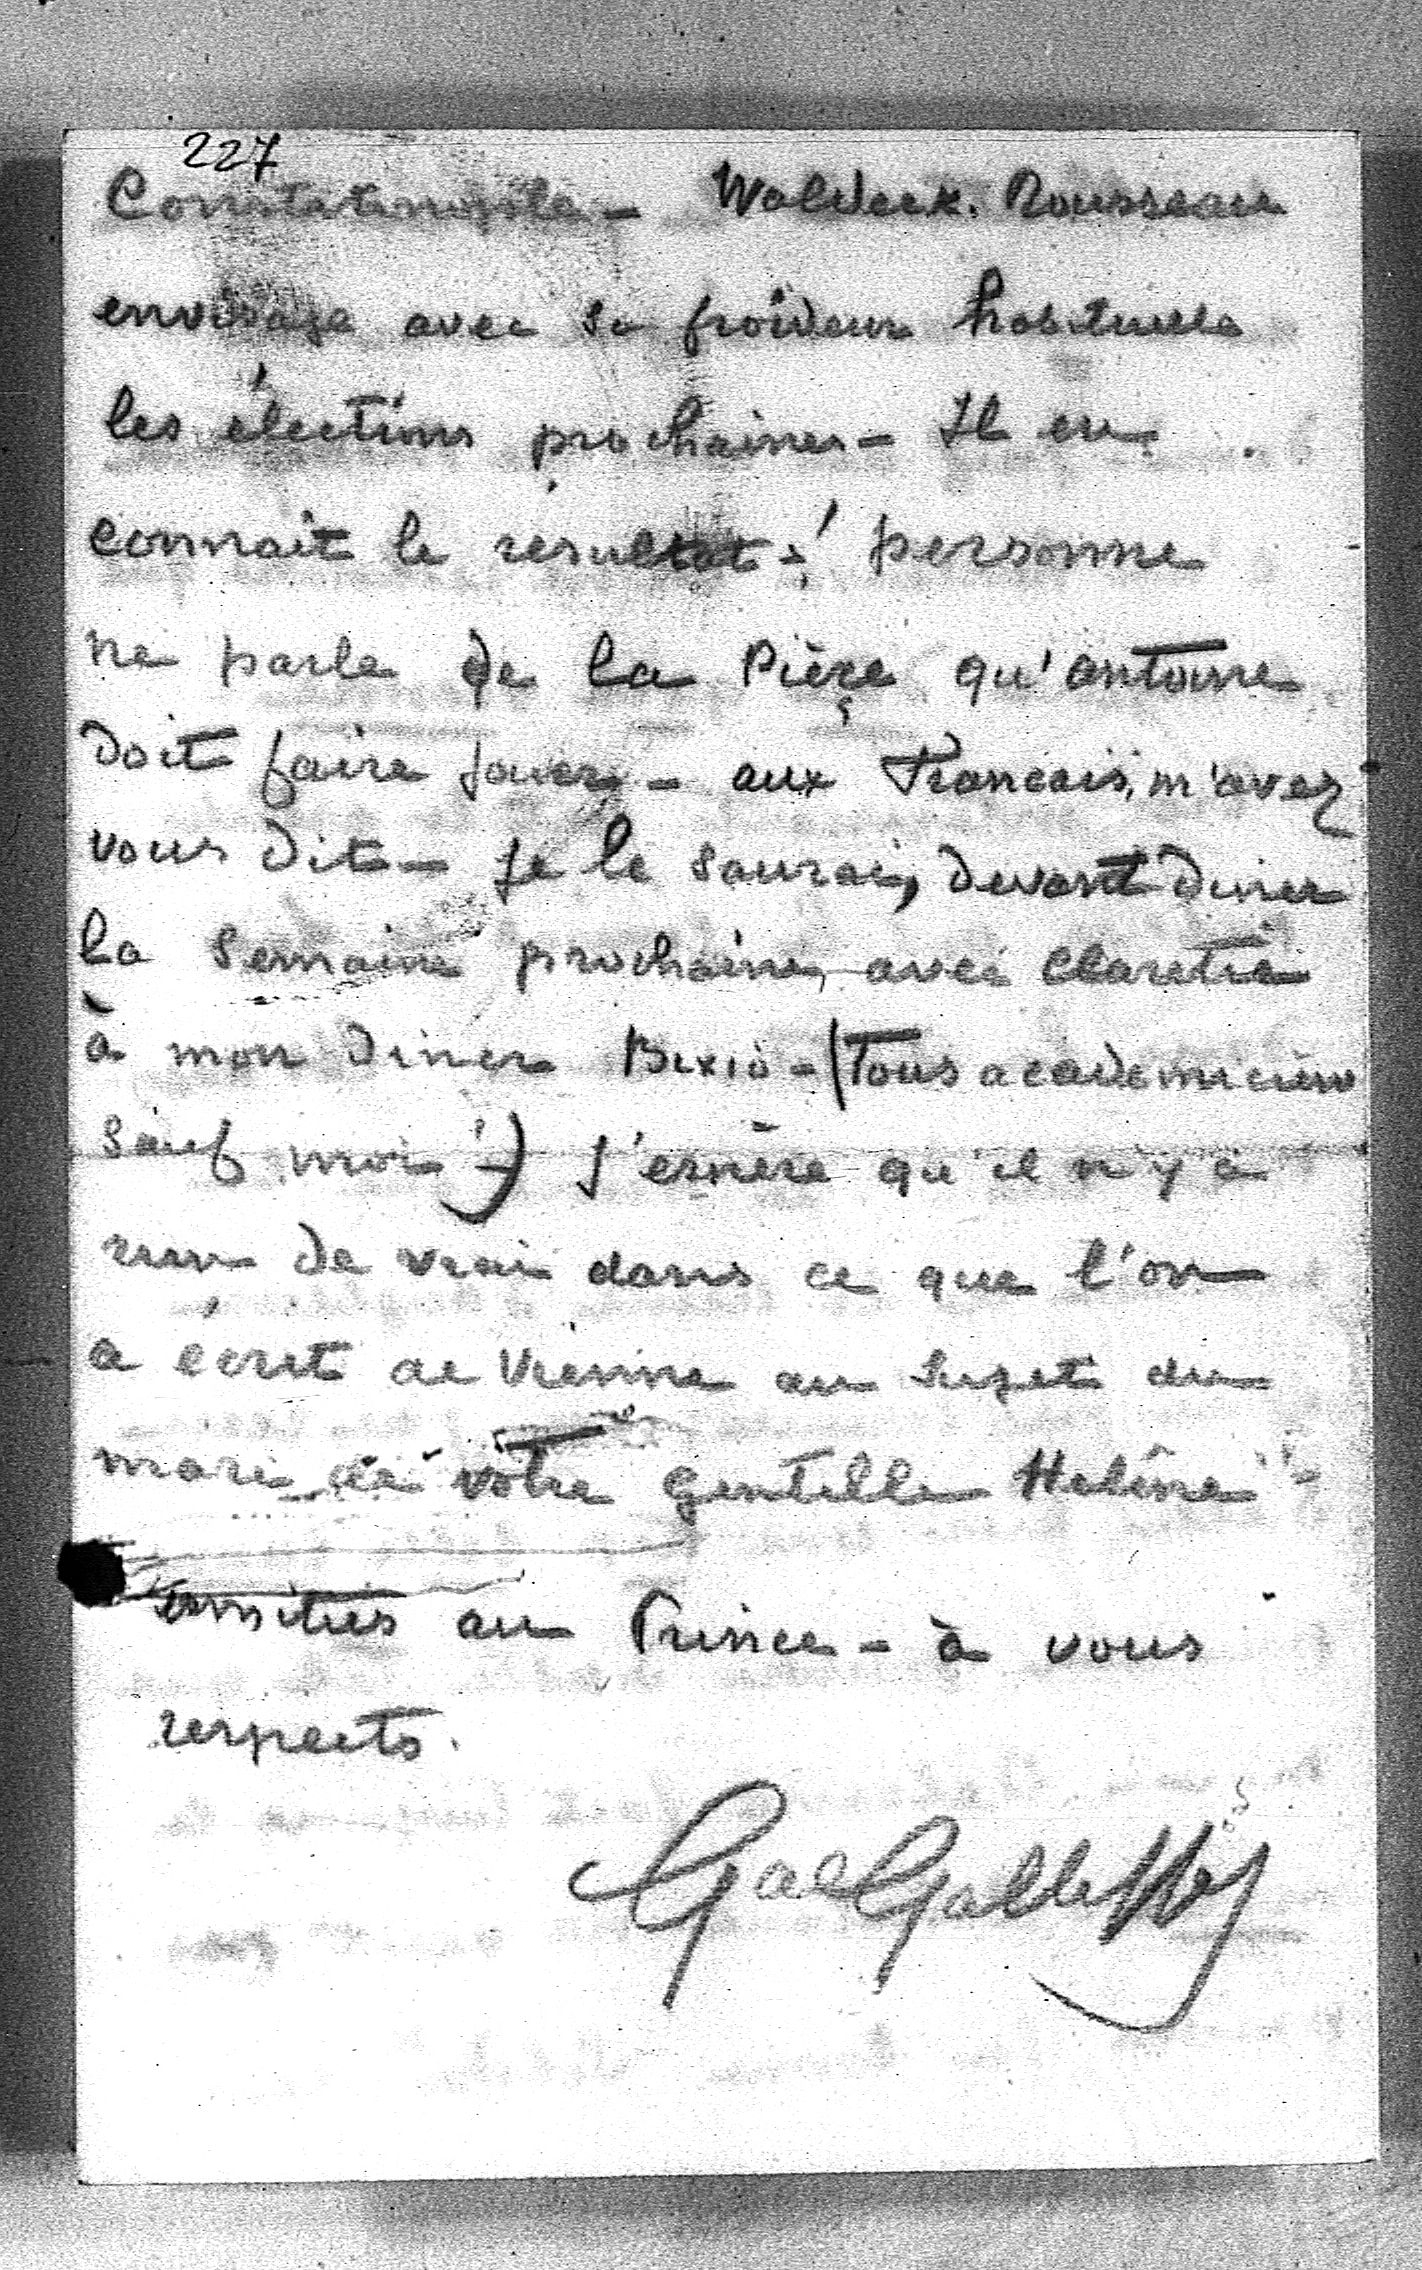 227
Constantinople - Waldeck. Rousseau
envisage avec sa froideur habituelle
les élections prochaines - Il en
connait le résultat - ! personne
ne parle de la Pièce qu'antoine
doit faire jouer - aux Francais, m'avez
vous dit - Je le saurai, devant diner
la semaine prochaine, avec Claretie
à mon diner Bixio - (Tous academiciens
sauf moi !) J'espère qu'il n'y a
rien de vrai dans ce que l'on
a écrit de Vienne au sujet du
mari de votre gentille Helène -
amitiés au Prince - à vous
respects.
Gal Galliffet